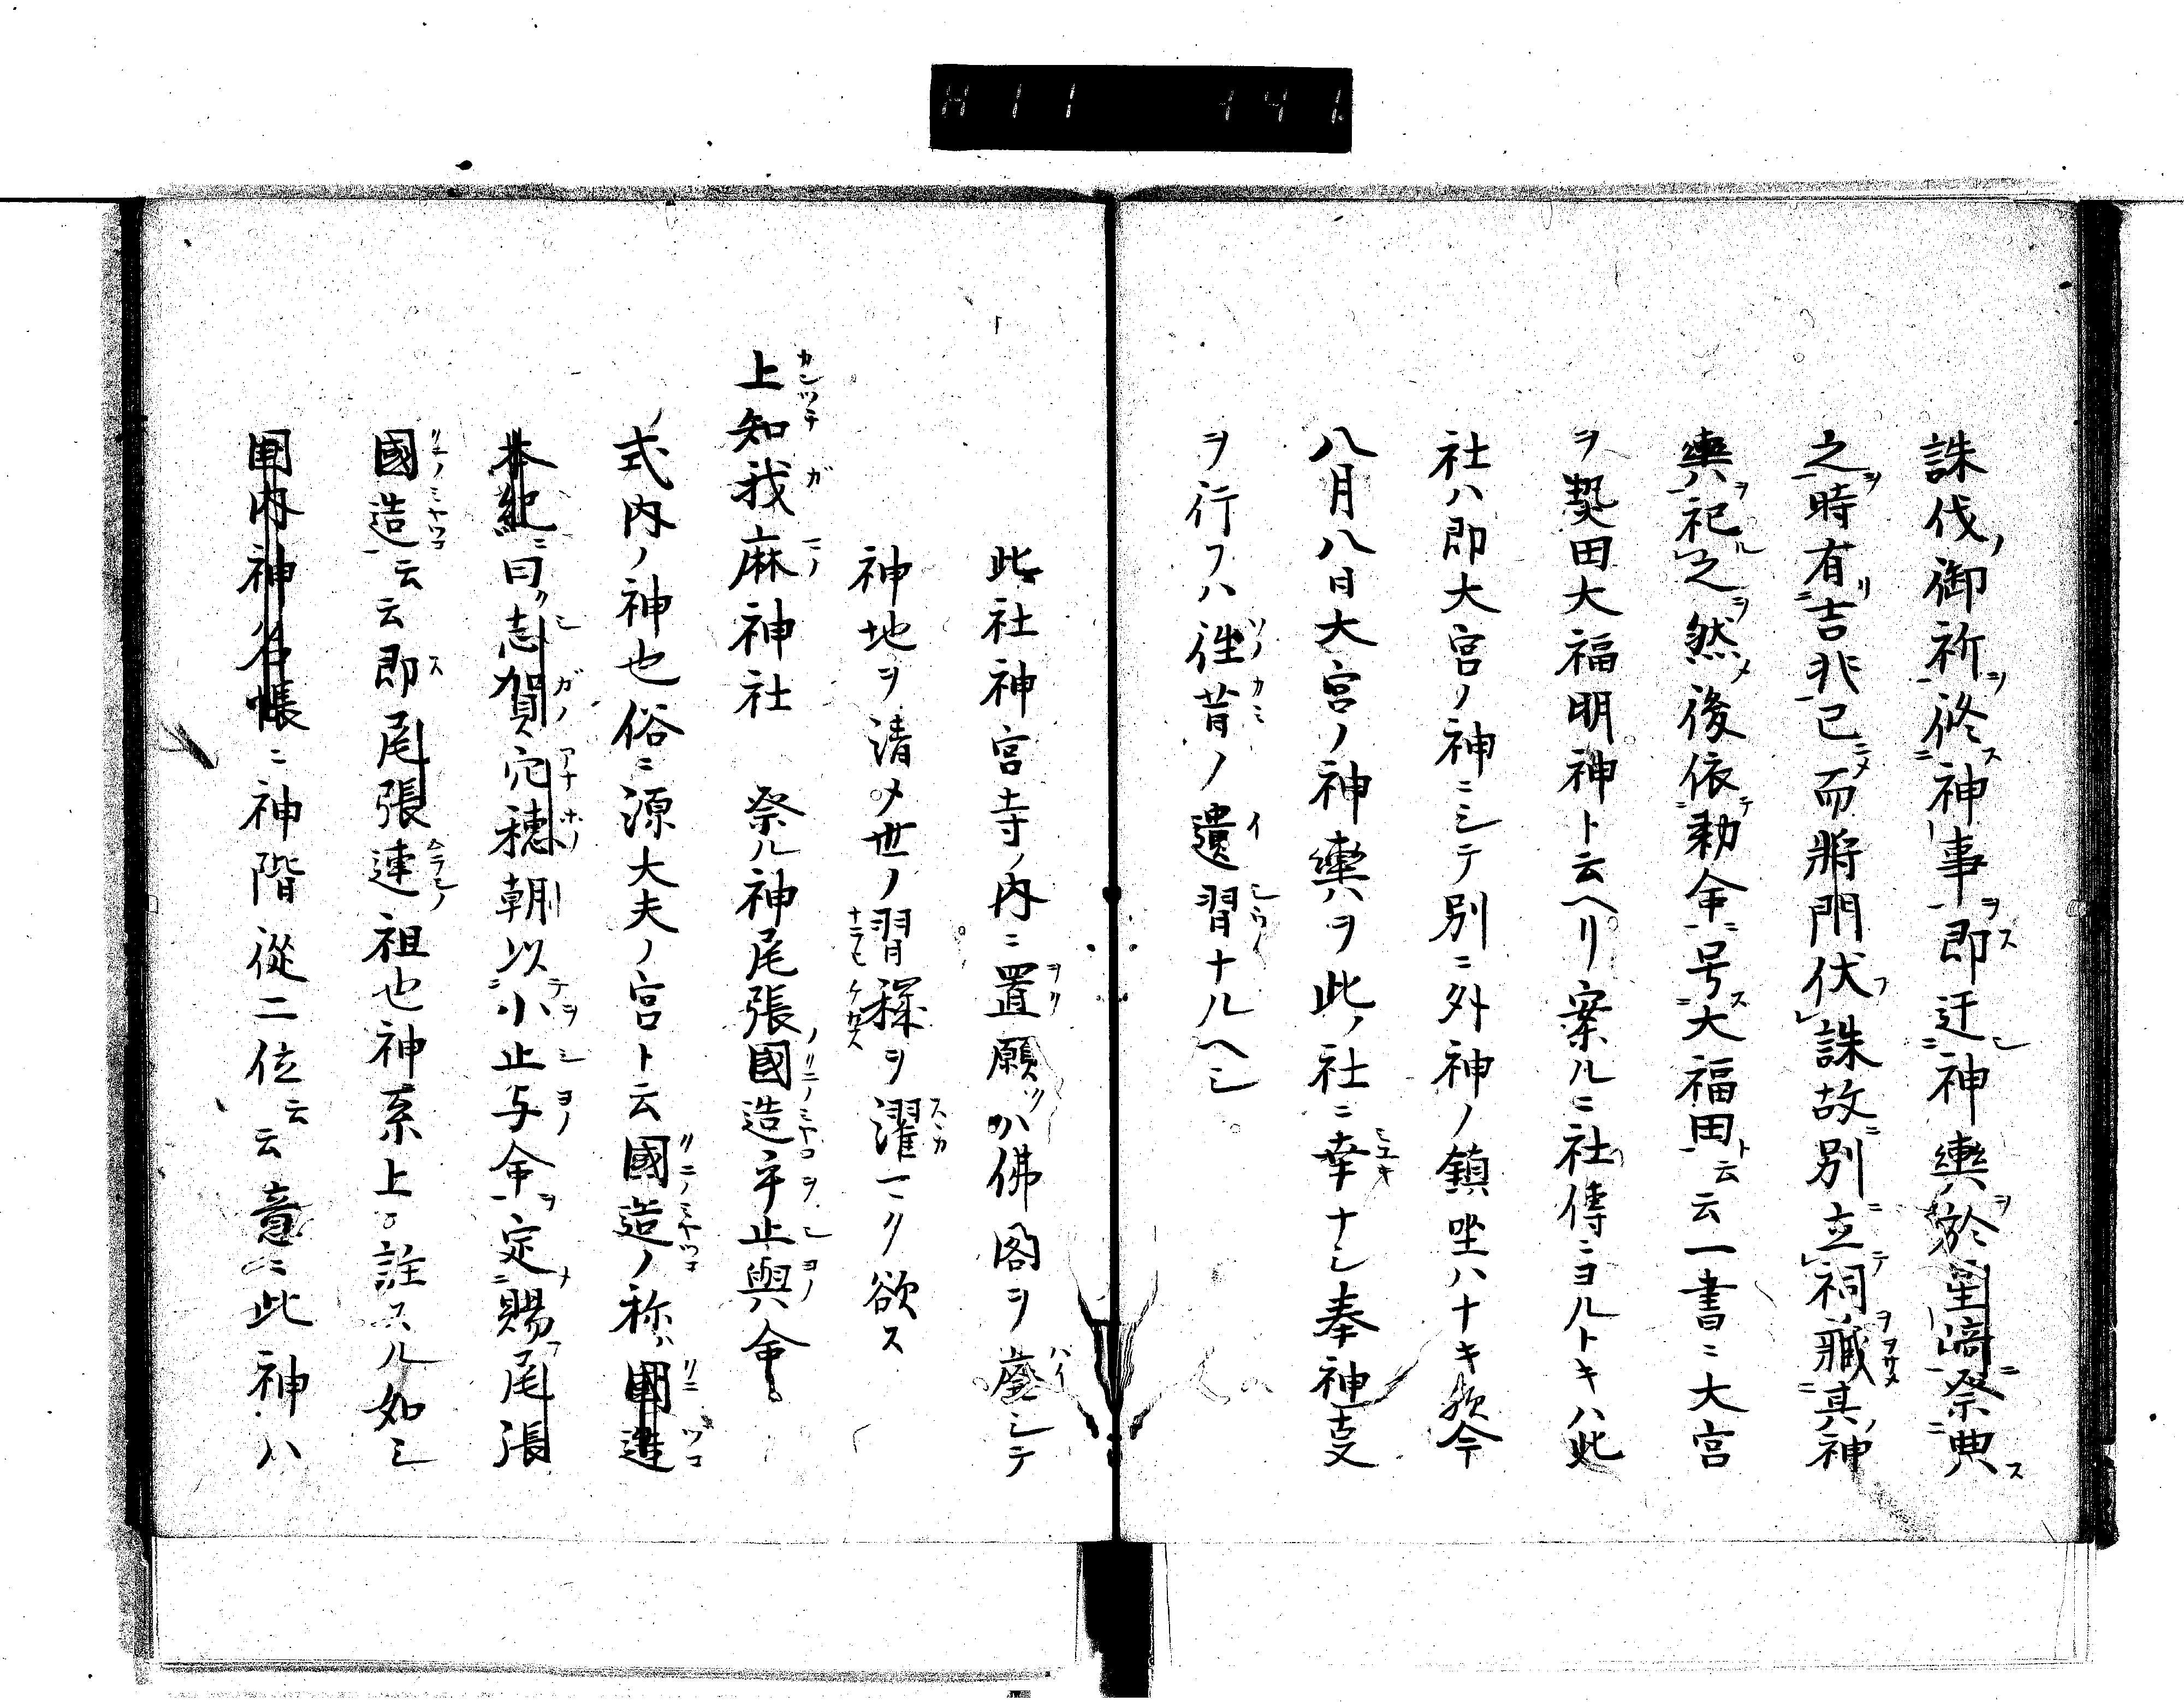 H11 141
誅伐ノ御祈ヲ修ス神事ヲ即迁神輿ヲ於星﨑ニ祭典ス
之時有吉兆已而將門伏誅故別ニ立テ祠ヲ藏其神
輿祀之然後依勅命号大福田ト云云一書ニ大宮
ヲ熱田大福明神ト云ヘリ案ルニ社傳ニヨルトキハ此
社ハ即大宮ノ神ニシテ別ニ外神ノ鎮坐ハナキ歟今
八月八日大宮ノ神輿ヲ此ノ社ニ幸ナシ奉神㕝
ヲ行フハ徃昔ノ遺習ナルヘシ
此社神宮寺ノ内ニ置願ハ佛閣ヲ廢シテ
神地ヲ清メ世ノ習穢ヲ濯ク欲ス
上知我麻神社 祭ル神尾張國造乎止與命
式内ノ神也俗ニ源大夫ノ宮ト云國造ノ称ハ國造
本紀ニ曰ク志賀穴穂朝以小止与命定賜尾張
國造云云即尾張連祖也神系上ニ註スル如シ
國内神名帳ニ神階從二位云云意ニ此神ハ